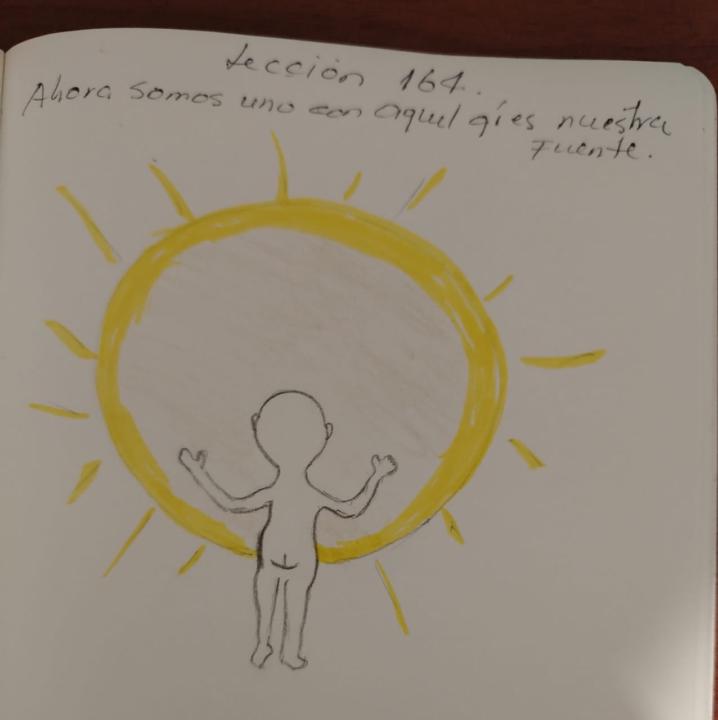 Lección 164.
Ahora somos uno con aquel q́ es nuestra
Fuente.